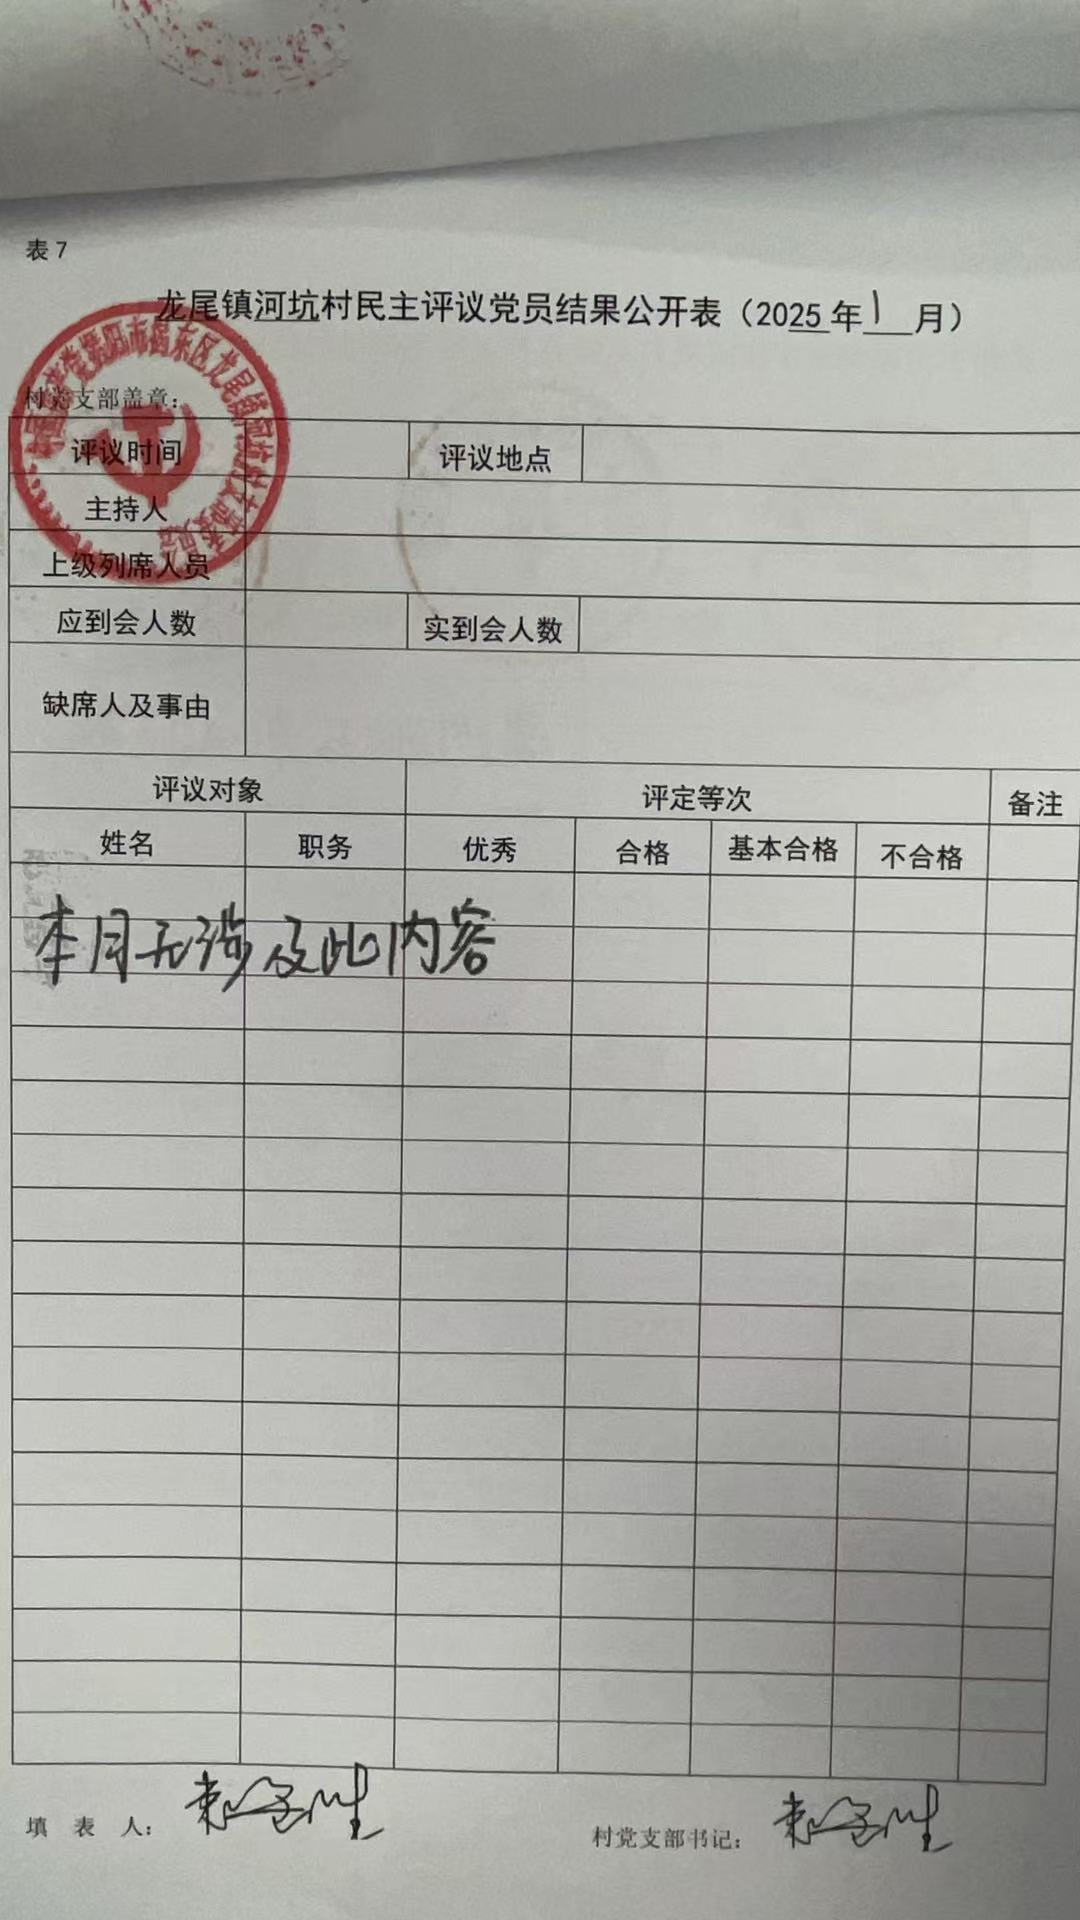 表 7
龙尾镇河坑村民主评议党员结果公开表（2025 年 1 月）
村党支部盖章：
评议时间 评议地点
主持人
上级列席人员
应到会人数 实到会人数
缺席人及事由
评议对象 评定等次 备注
姓名 职务 优秀 合格 基本合格 不合格
本月无涉及此内容
填 表 人：
村党支部书记：